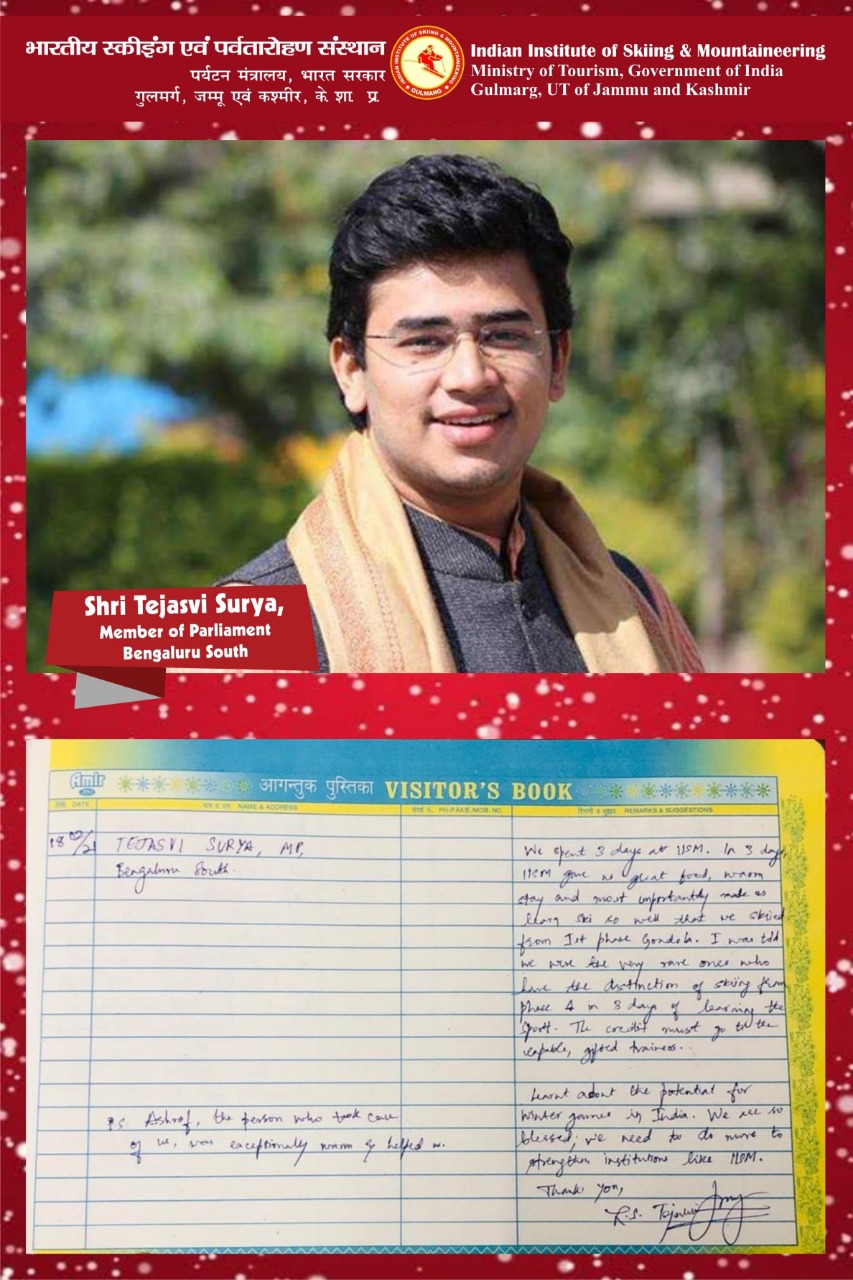 भारतीय स्कीइंग एवं पर्वतारोहण संस्थान
पर्यटन मंत्रालय, भारत सरकार
गुलमर्ग, जम्मू एवं कश्मीर, के. शा. प्र.
INDIAN INSTITUTE OF SKIING & MOUNTAINEERING
GULMARG
Indian Institute of Skiing & Mountaineering
Ministry of Tourism, Government of India
Gulmarg, UT of Jammu and Kashmir
Shri Tejasvi Surya,
Member of Parliament
Bengaluru South
Amir
आगन्तुक पुस्तिका VISITOR'S BOOK
तिथि DATE
नाम व पता NAME & ADDRESS
PH/FAX/E/MOB. NO.
टिप्पणी व सुझाव REMARKS & SUGGESTIONS
18 02/21
TEJASVI SURYA, MP,
Bengaluru South.
We spent 3 days at IISM. In 3 days,
IISM gave us great food, warm
stay and most importantly made us
learn ski so well that we skiied
from Ist phase Gondola. I was told
we were the very rare ones who
have the distinction of skiing from
phase 1 in 3 days of learning the
sport. The credit must go to the
capable, gifted trainers..
Learnt about the potential for
winter games in India. We are so
blessed; we need to do more to
strengthen institutions like IISM.
Thank you,
L.S. Tejasvi
P.S. Ashrof, the person who took care
of us, was exceptionally warm & helped us.